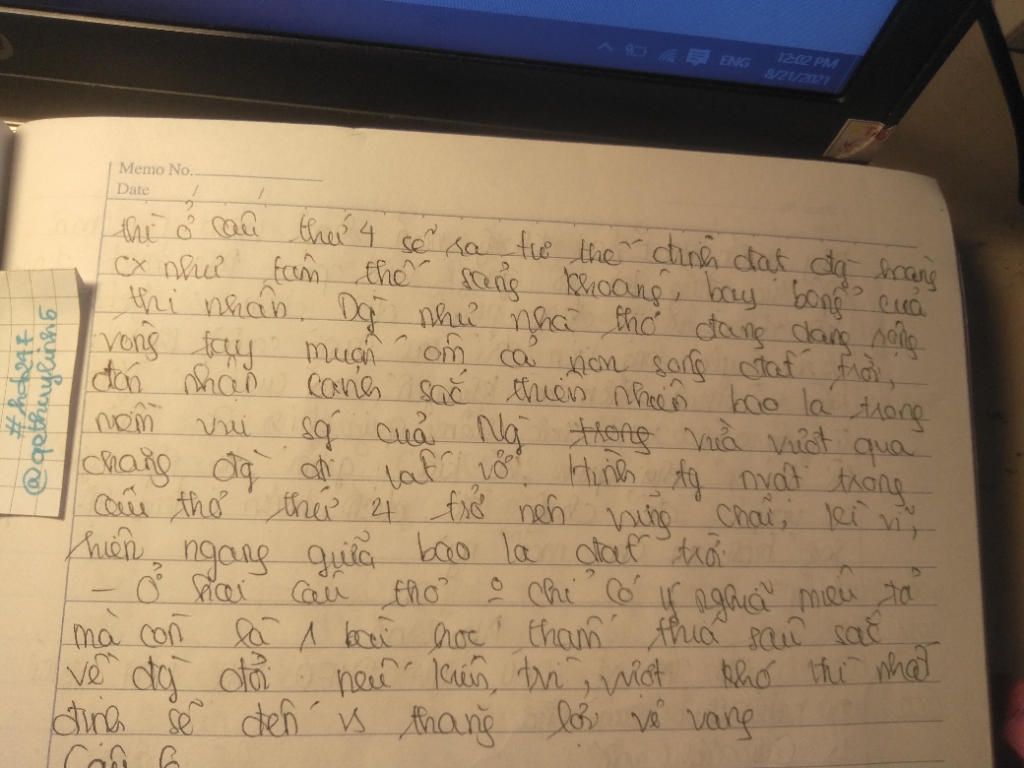 ENG
12:02 PM
8/21/2021
Memo No.
Date / /
#hoc247
@qpethuylinh5
thì ở câu thứ 4 sẽ sa tư thế đĩnh đạt đg hoàng
cx như tâm thế sảng khoái, bay bổng của
thi nhân. Dg như nhà thơ đang dang rộng
vòng tay muốn ôm cả non sông đất trời,
đón nhận cảnh sắc thiên nhiên bao la trong
niềm vui sg của Ng trong vừa vượt qua
chặng đg đi vất vả. Hình tg nvật trong
câu thơ thứ 4 trở nên vững chãi, kì vĩ,
hiên ngang giữa bao la đất trời
– Ở hai câu thơ chỉ có ý nghĩa miêu tả
mà còn là 1 bài học thấm thía sâu sắc
về đg đời nếu kiên trì, vượt khó thì nhất
định sẽ đến vs thắng lợi vẻ vang
Câu 6